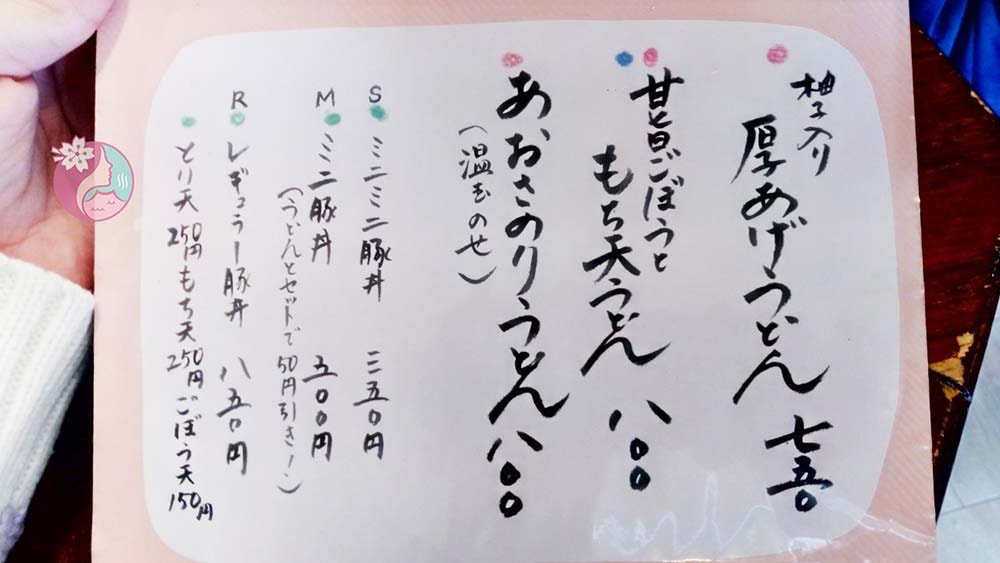 柚子入り
厚あげうどん 七五〇
甘旨ごぼうと
もち天うどん 八〇〇
あおさのりうどん 八〇〇
(温玉のせ)
S ミニミニ豚丼 三五〇円
M ミニ豚丼 五〇〇円
(うどんとセットで50円引き!)
R レギュラー豚丼 八五〇円
とり天250円 もち天250円 ごぼう天150円